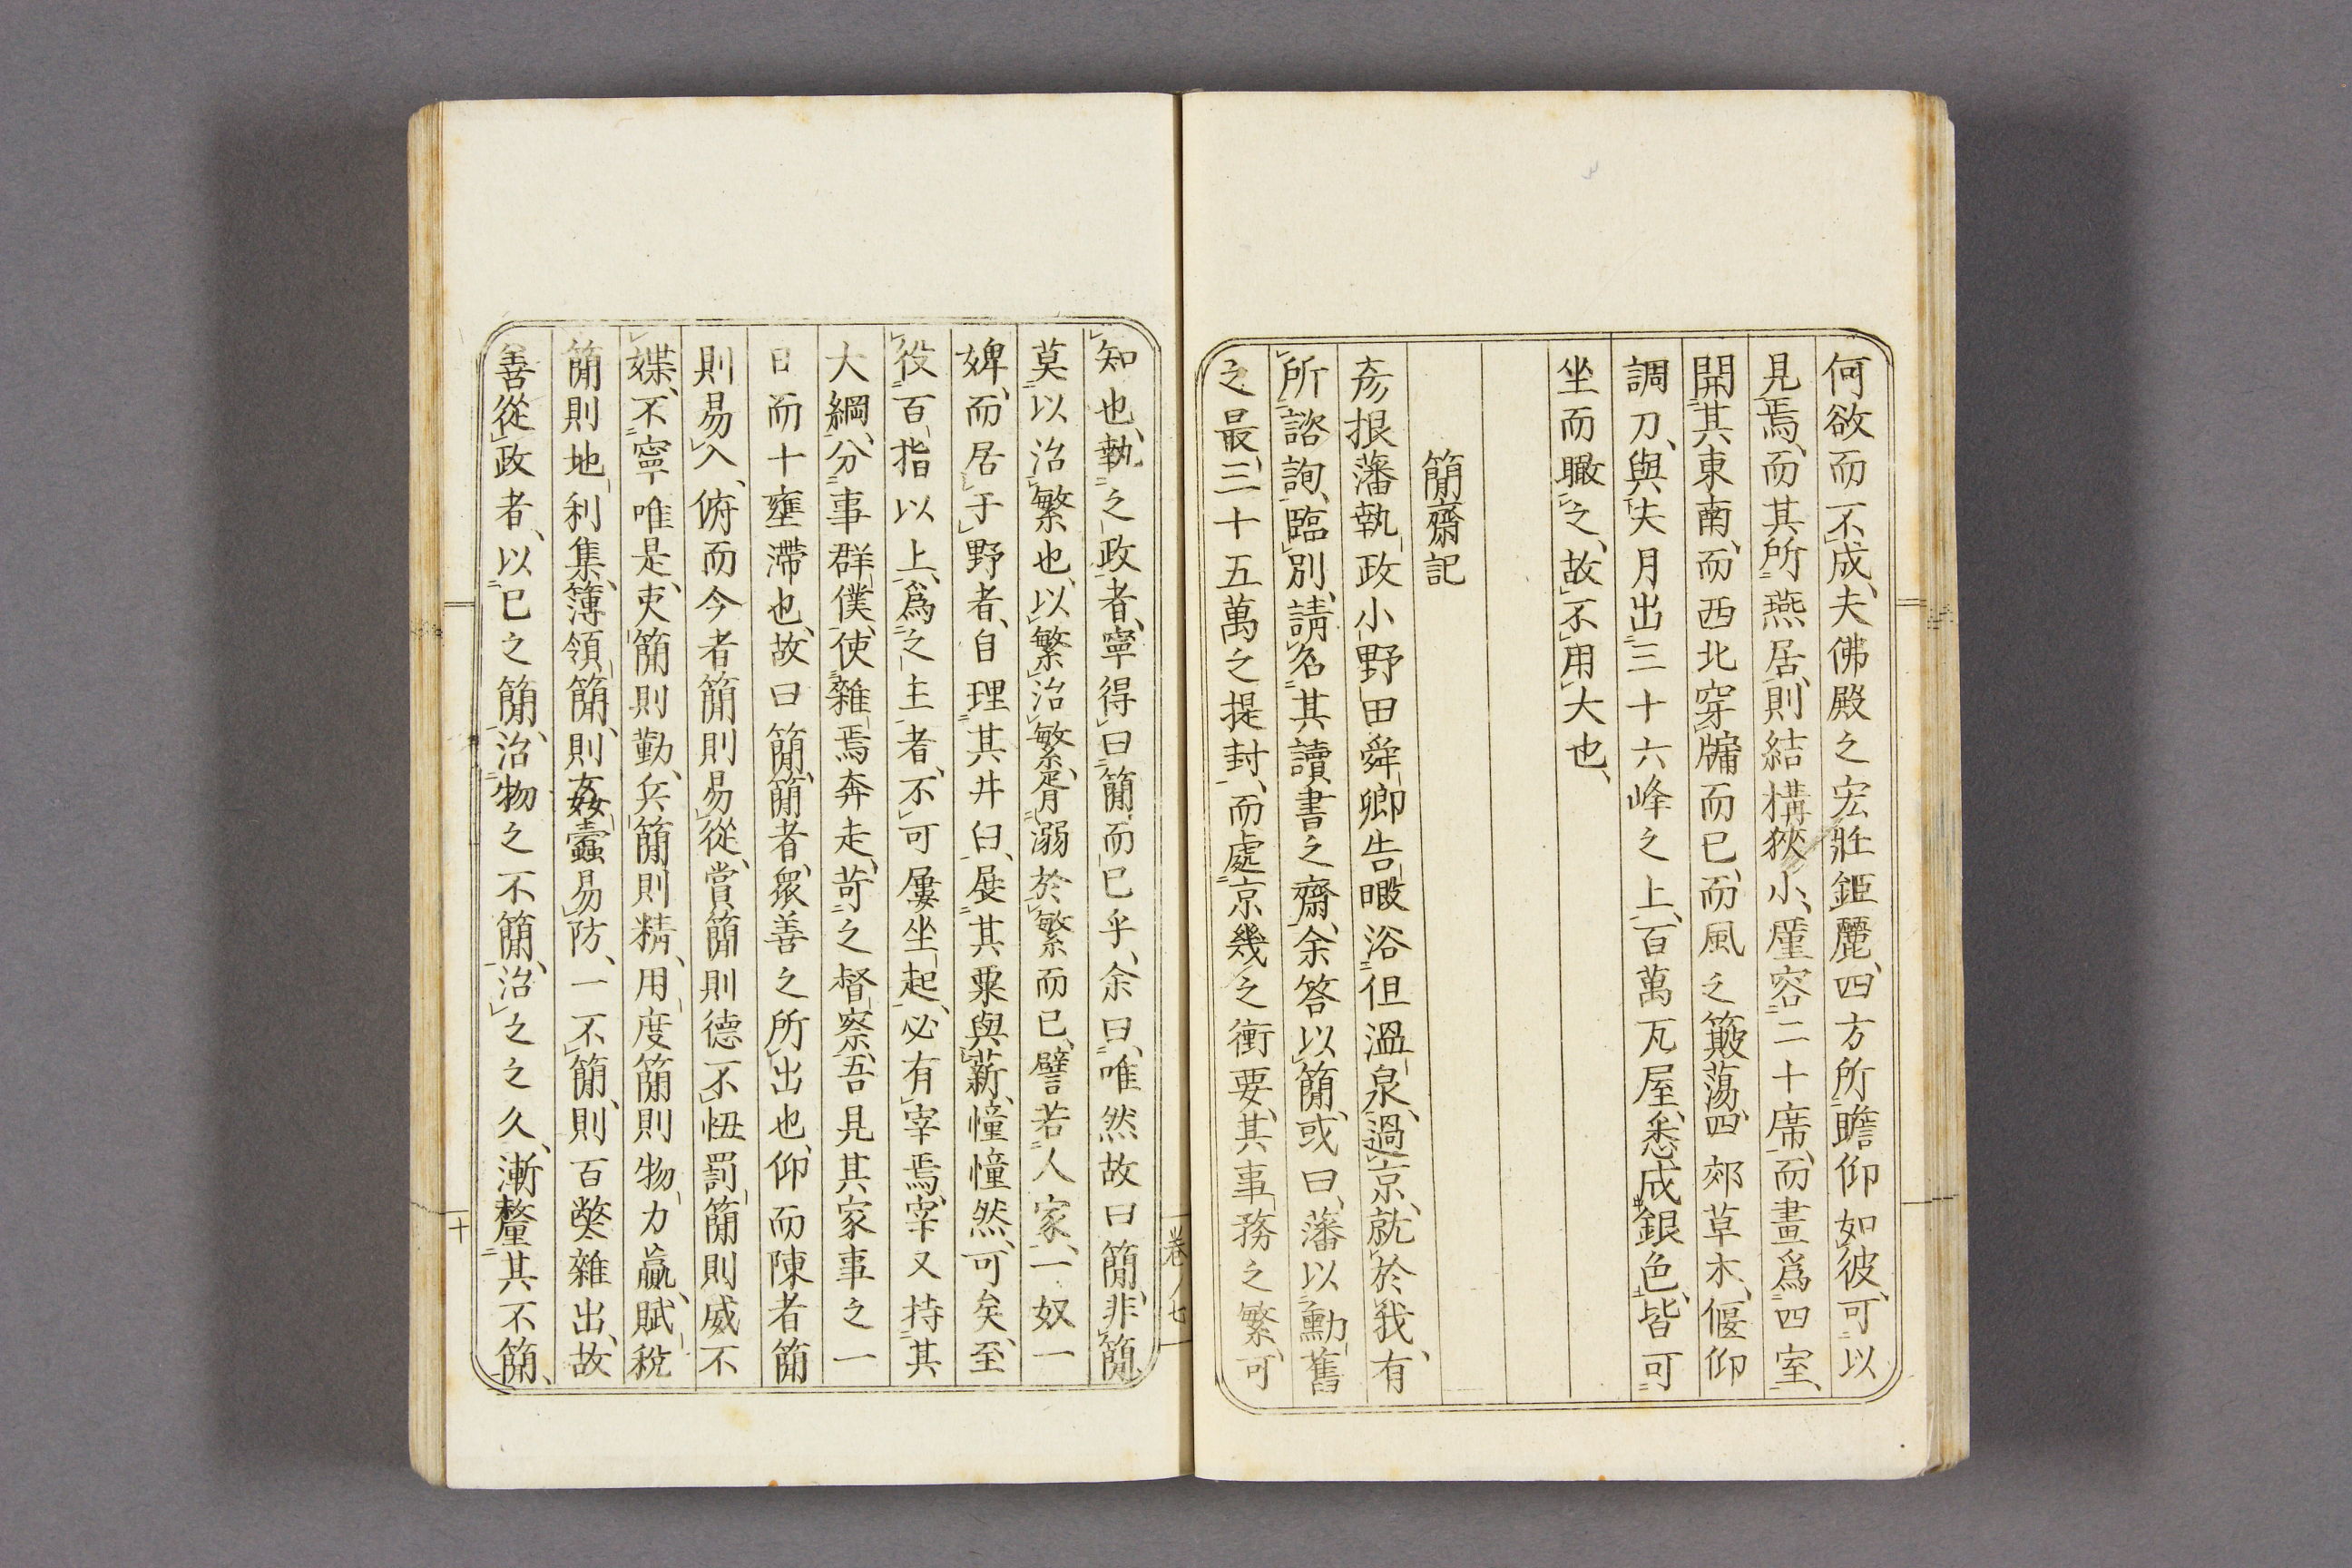 何欲而不成、夫佛殿之宏壯鉅麗、四方所瞻仰如彼、可以
見焉、而其所燕居、則結構狹小、厪容二十席、而畫爲四室、
開其東南、而西北穿牖而已、而風之簸蕩、四郊草木、偃仰
調刀、與夫月出三十六峰之上、百萬瓦屋、悉成銀色、皆可
坐而瞰之、故不用大也、
簡齋記
彥根藩執政小野田舜卿告暇浴但溫泉、過京、就於我、有
所諮詢、臨別、請名其讀書之齋、余答以簡、或曰、藩以勳舊
之最、三十五萬之提封、而處京幾之衝要、其事務之繁、可
知也、執之政者、寧得曰簡而已乎、余曰、唯然故曰簡、非簡
莫以治繁也、以繁治繁、胥溺於繁而已、譬若人家、一奴一
婢、而居于野者、自理其井臼、展其粟與薪、憧憧然、可矣、至
役百指以上、爲之主者、不可屢坐起、必有宰焉、宰又持其
大綱、分事群僕、使雜焉奔走、苛之督察、吾見其家事之一
日而十壅滯也、故曰簡、簡者、衆善之所出也、仰而陳者簡
則易入、俯而令者簡則易從、賞簡則德不忸、罰簡則威不
媟、不寧唯是、吏簡則勤、兵簡則精、用度簡則物力贏、賦稅
簡則地利集、簿領簡、則姦蠹易防、一不簡、則百弊雜出、故
善從政者、以已之簡、治物之不簡、治之之久、漸釐其不簡、
卷ノ七
十